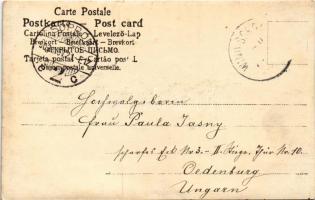 Carte Postale
Postkarte Post card
Cartolina Postale Levelező-Lap
Brevkort - Briefkaart - Brevkort
ОТКРЫТОЕ ПИСЬМО.
Tarjeta postal Cartão postal
Union postale universelle.
Hochwolgeboren
Frau Paula Jasny
scharfes Eck No 3. - II. Stiege, Thür No. 10.
Oedenburg
Ungarn